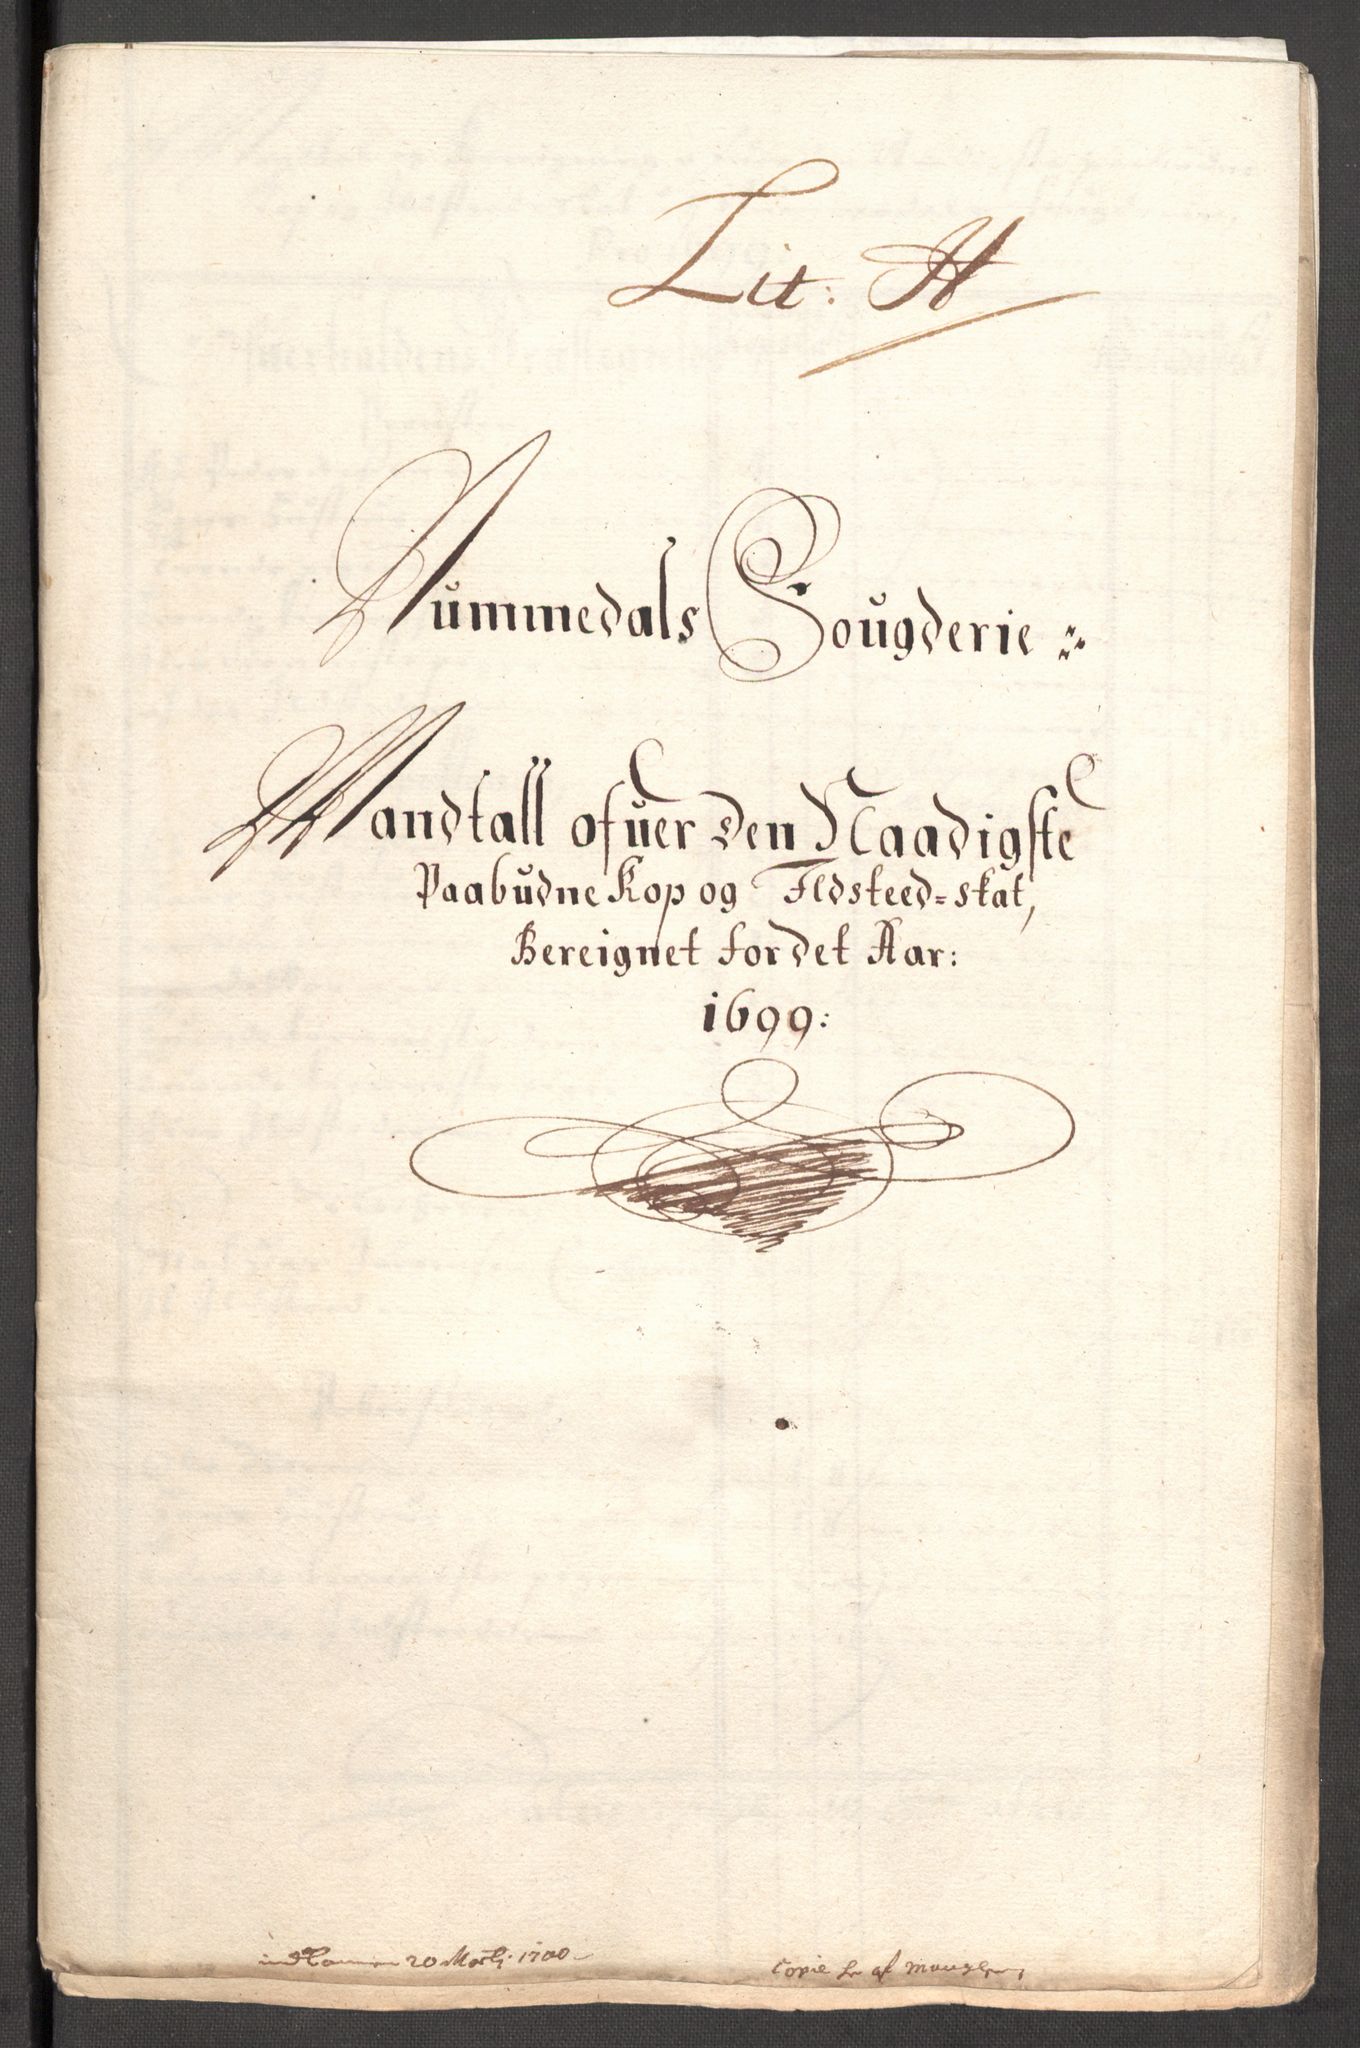 Lit: H
Nummedals Fougderie
Mandtall ofuer den Naadigste
Paabudne Kop og Ildsteed=skat,
Bereignet for det Aar:
1699:
20 Martj: 1700
Copie af